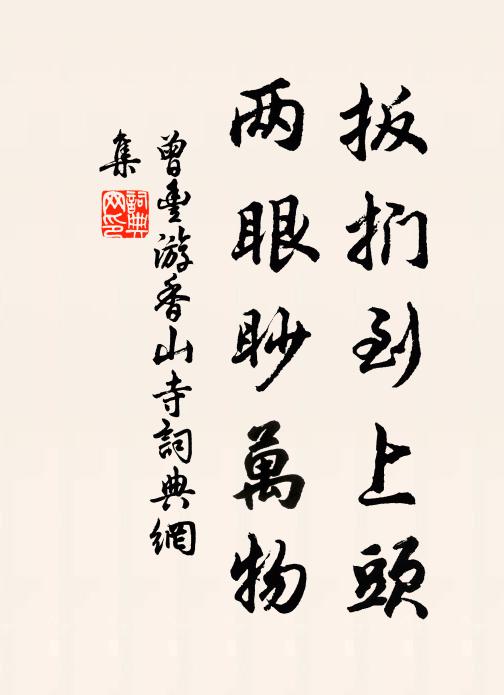 扳捫到上頭
两眼眇萬物
曾豊游香山寺詞典網
集
詞典網印